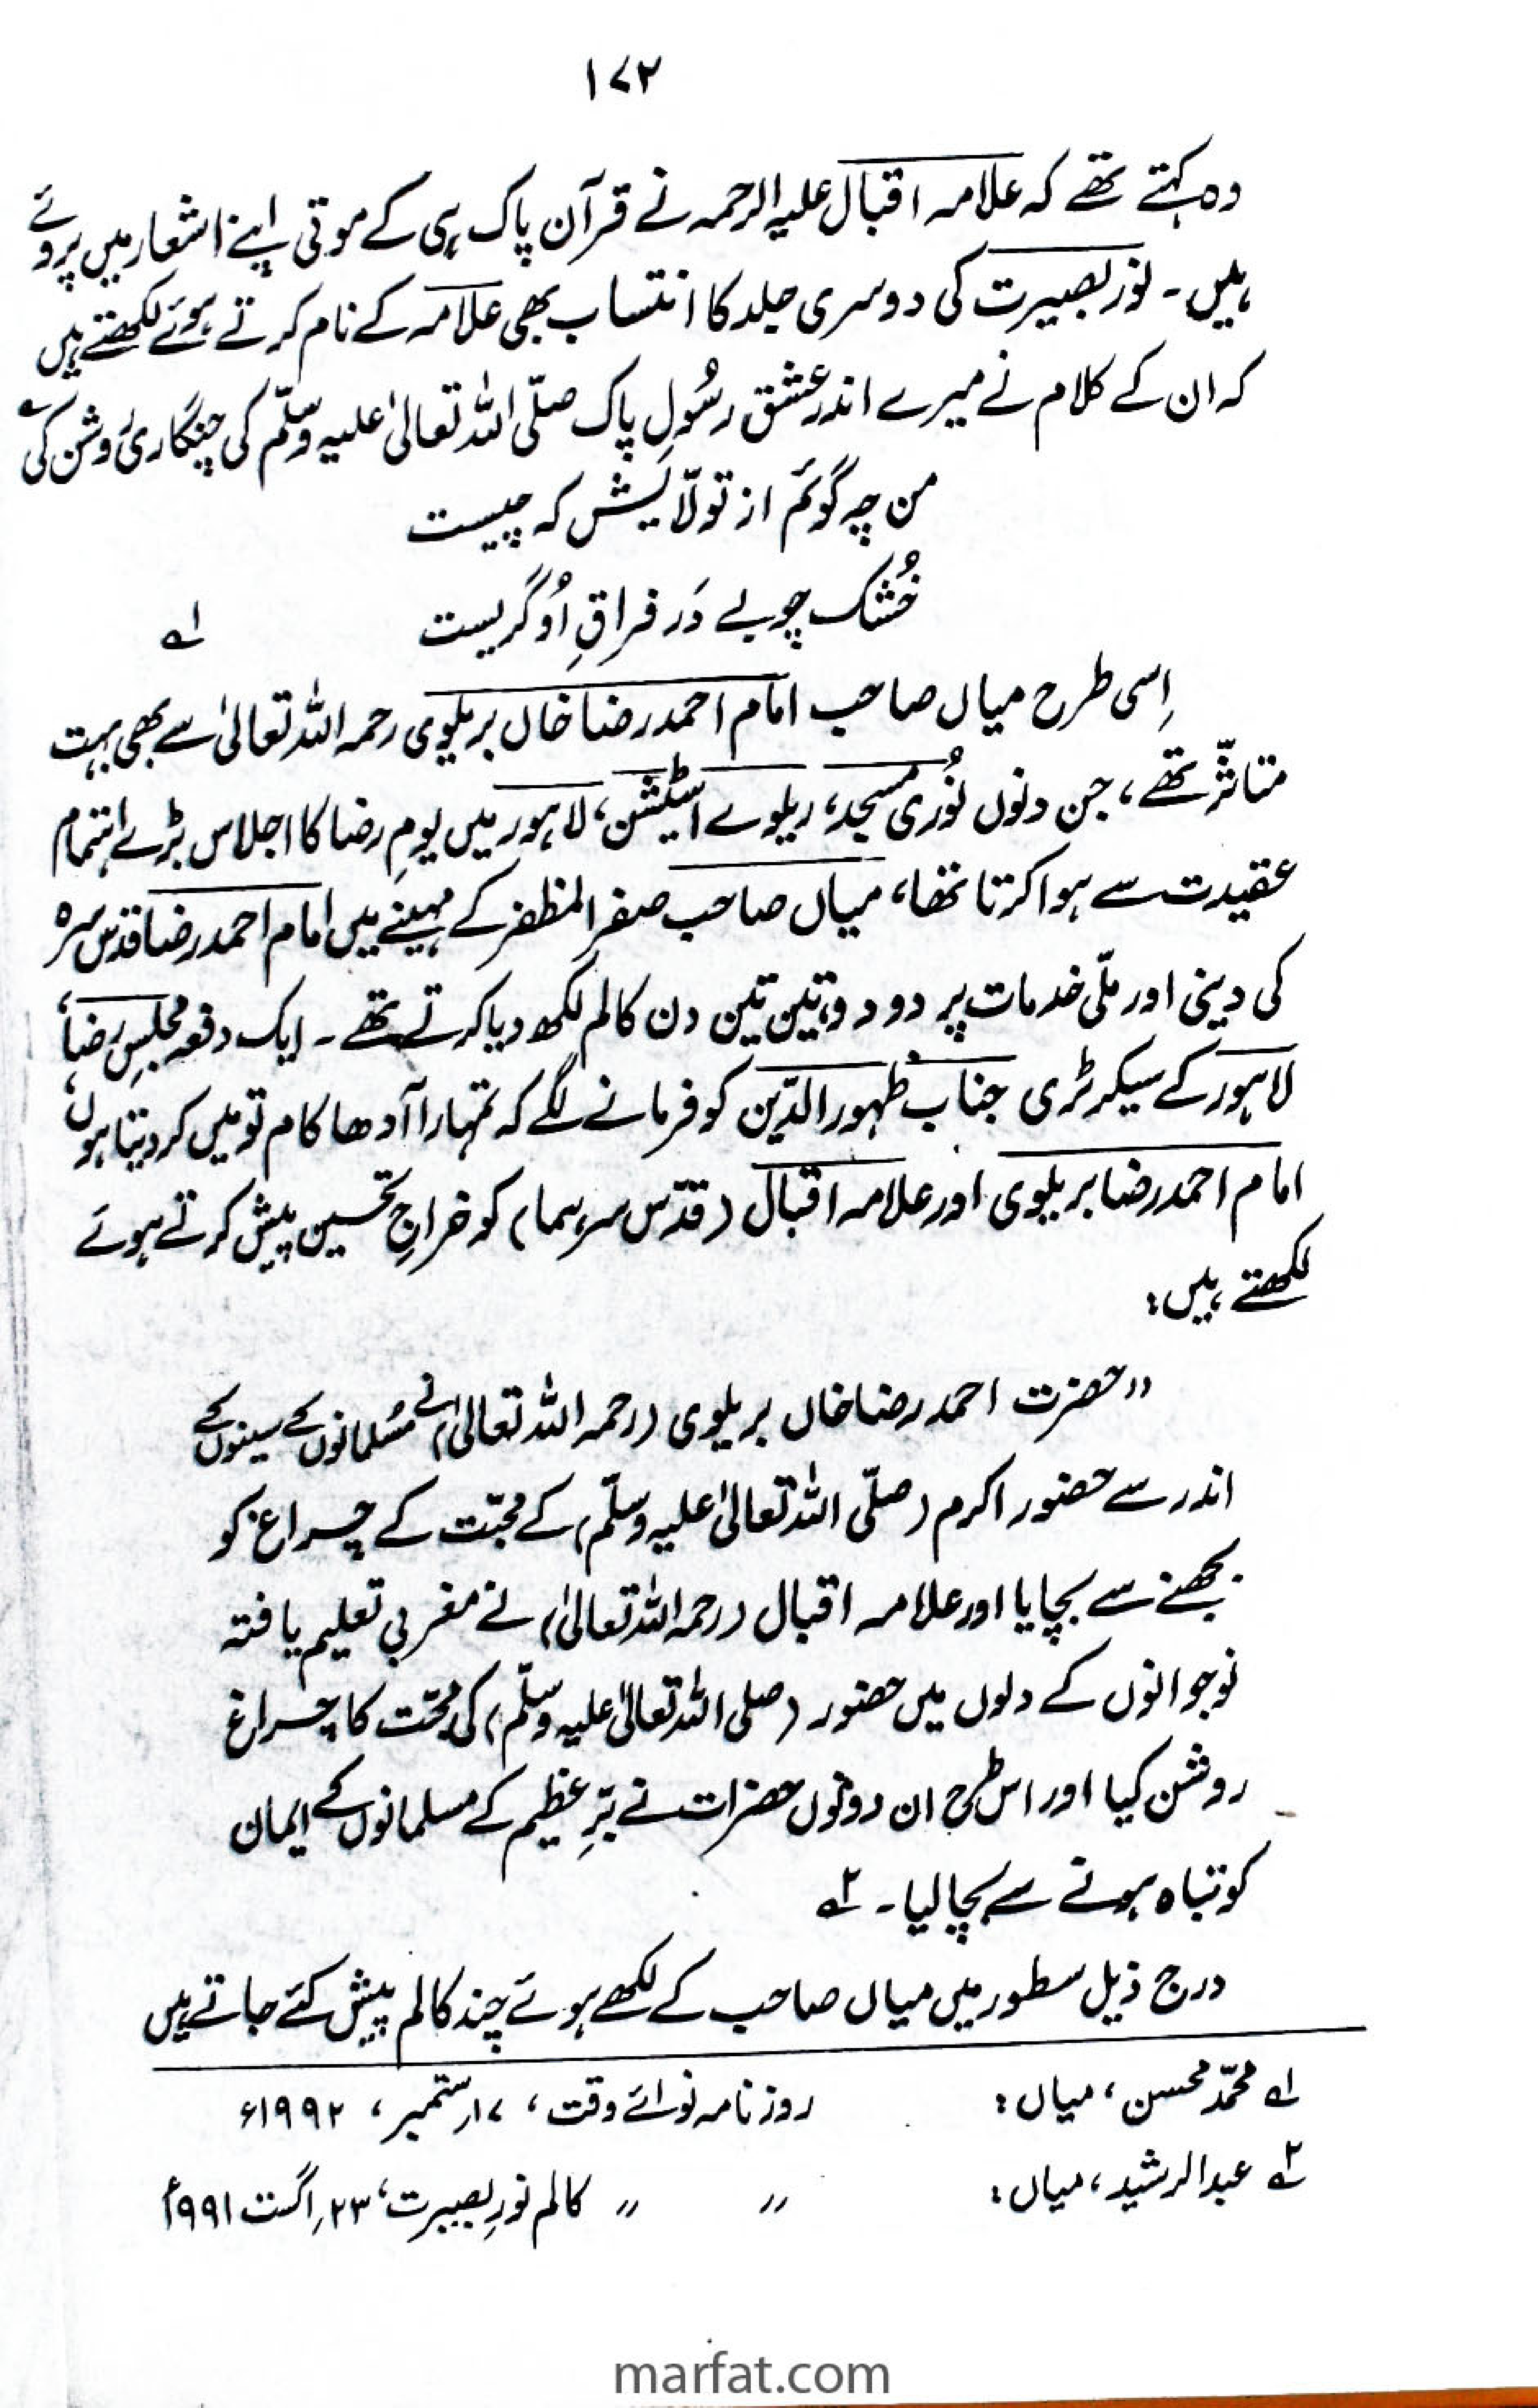 ۱۷۲
وہ کہتے تھے کہ علامہ اقبال علیہ الرحمہ نے قرآن پاک ہی کے موتی اپنے اشعار میں پروئے
ہیں۔ نور بصیرت کی دوسری جلد کا انتساب بھی علامہ کے نام کرتے ہوئے لکھتے ہیں
کہ ان کے کلام نے میرے اندر عشق رسُولِ پاک صلّی اللہ تعالیٰ علیہ وسلّم کی چنگاری روشن کی ؎
من چہ گوئم از تولّایش کہ چیست
خُشک چوبے دَر فراقِ اُو گریست ۱ھ
اِسی طرح میاں صاحب امام احمد رضا خاں بریلوی رحمہ اللہ تعالیٰ سے بھی بہت
متاثّر تھے، جن دنوں نُوری مسجد، ریلوے اسٹیشن، لاہور میں یومِ رضا کا اجلاس بڑے اہتمام
عقیدت سے ہوا کرتا تھا، میاں صاحب صفر المظفر کے مہینے میں امام احمد رضا قدس سرہ
کی دینی اور ملّی خدمات پر دو دو، تین تین دن کالم لکھ دیا کرتے تھے۔ ایک دفعہ مجلسِ رضا،
لاہور کے سیکرٹری جناب ظہور الدّین کو فرمانے لگے کہ تمہارا آدھا کام تو میں کر دیتا ہوں،
امام احمد رضا بریلوی اور علامہ اقبال (قدّس سرہما) کو خراجِ تحسین پیش کرتے ہوئے
لکھتے ہیں:
"حضرت احمد رضا خاں بریلوی (رحمہ اللہ تعالیٰ) نے مُسلمانوں کے سینوں کے
اندر سے حضور اکرم (صلّی اللہ تعالیٰ علیہ وسلّم) کے محبّت کے چراغ کو
بجھنے سے بچایا اور علامہ اقبال (رحمہ اللہ تعالیٰ) نے مغربی تعلیم یافتہ
نوجوانوں کے دلوں میں حضور (صلی اللہ تعالیٰ علیہ وسلّم) کی محبّت کا چراغ
روشن کیا اور اس طرح ان دونوں حضرات نے برِّ عظیم کے مسلمانوں کے ایمان
کو تباہ ہونے سے بچا لیا۔ ۲ھ
درج ذیل سطور میں میاں صاحب کے لکھے ہوئے چند کالم پیش کئے جاتے ہیں
۱ھ محمّد محسن، میاں: روزنامہ نوائے وقت، ۱۷ ستمبر، ۱۹۹۲ء
۲ھ عبدالرشید، میاں: " " کالم نورِ بصیرت، ۲۳ اگست ۱۹۹۱ء
marfat.com